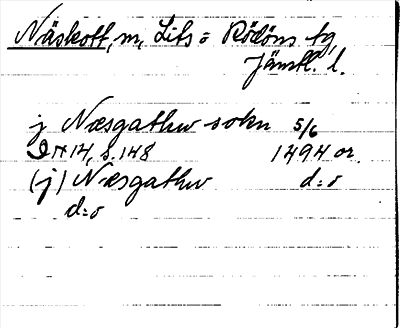 Näskott, m, Lits o Rödöns tg,
Jämtl. l.
j Næsgathw sokn 5/6
14, s. 148 1494 or.
(j) Næsgathw d:o
d:o